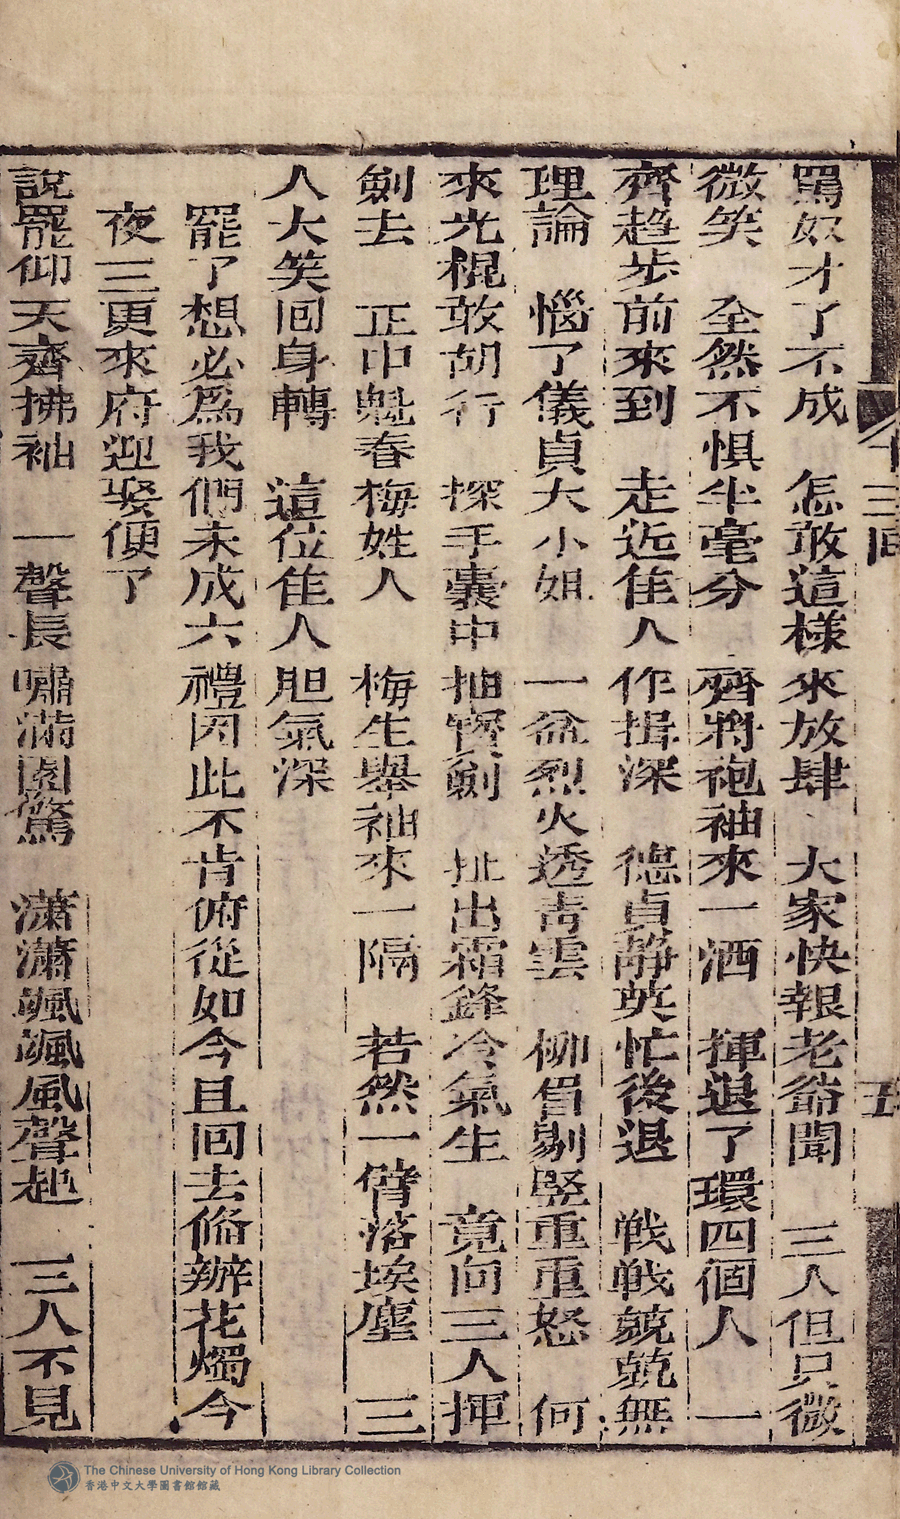 罵奴才了不成　怎敢這樣來放肆　大家快報老爺聞　三人但只微
微笑　全然不惧半毫分　齊將袍袖來一洒　揮退了環四個人　一
齊趋步前來到　走近佳人作揖深　德貞靜英忙後退　戦戦兢兢無
理論　惱了儀貞大小姐　一盆烈火透青雲　柳眉剔竪重重怒　何
來光棍敢胡行　探手囊中抽寳劍　扯出霜鋒冷氣生　竟向三人揮
劍去　正中魁春梅姓人　梅生舉袖來一隔　若然一臂落埃塵　三
人大笑回身轉　這位佳人胆氣深
罷了想必爲我們未成六禮因此不肯俯從如今且回去俻辦花燭今
夜三更來府迎娶便了
說罷仰天齊拂袖　一聲長嘯滿園驚　瀟瀟颯颯風聲起　三人不見
十三回
五
The Chinese University of Hong Kong Library Collection
香港中文大學圖書館館藏